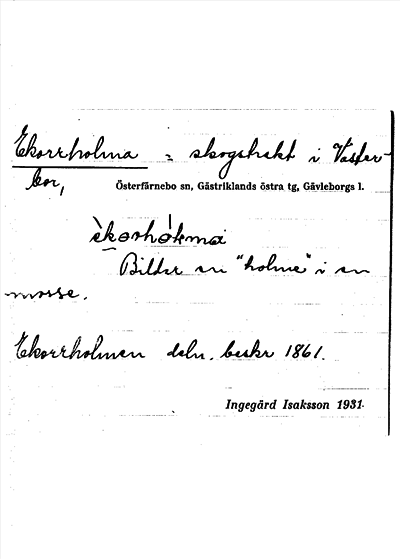 Ekorrholma = skogstrakt i Väster-
bor,
Österfärnebo sn, Gästriklands östra tg, Gävleborgs l.
Bildar en "holme" i en
mosse.
Ekorrholmen deln. beskr 1861.
Ingegärd Isaksson 1931.